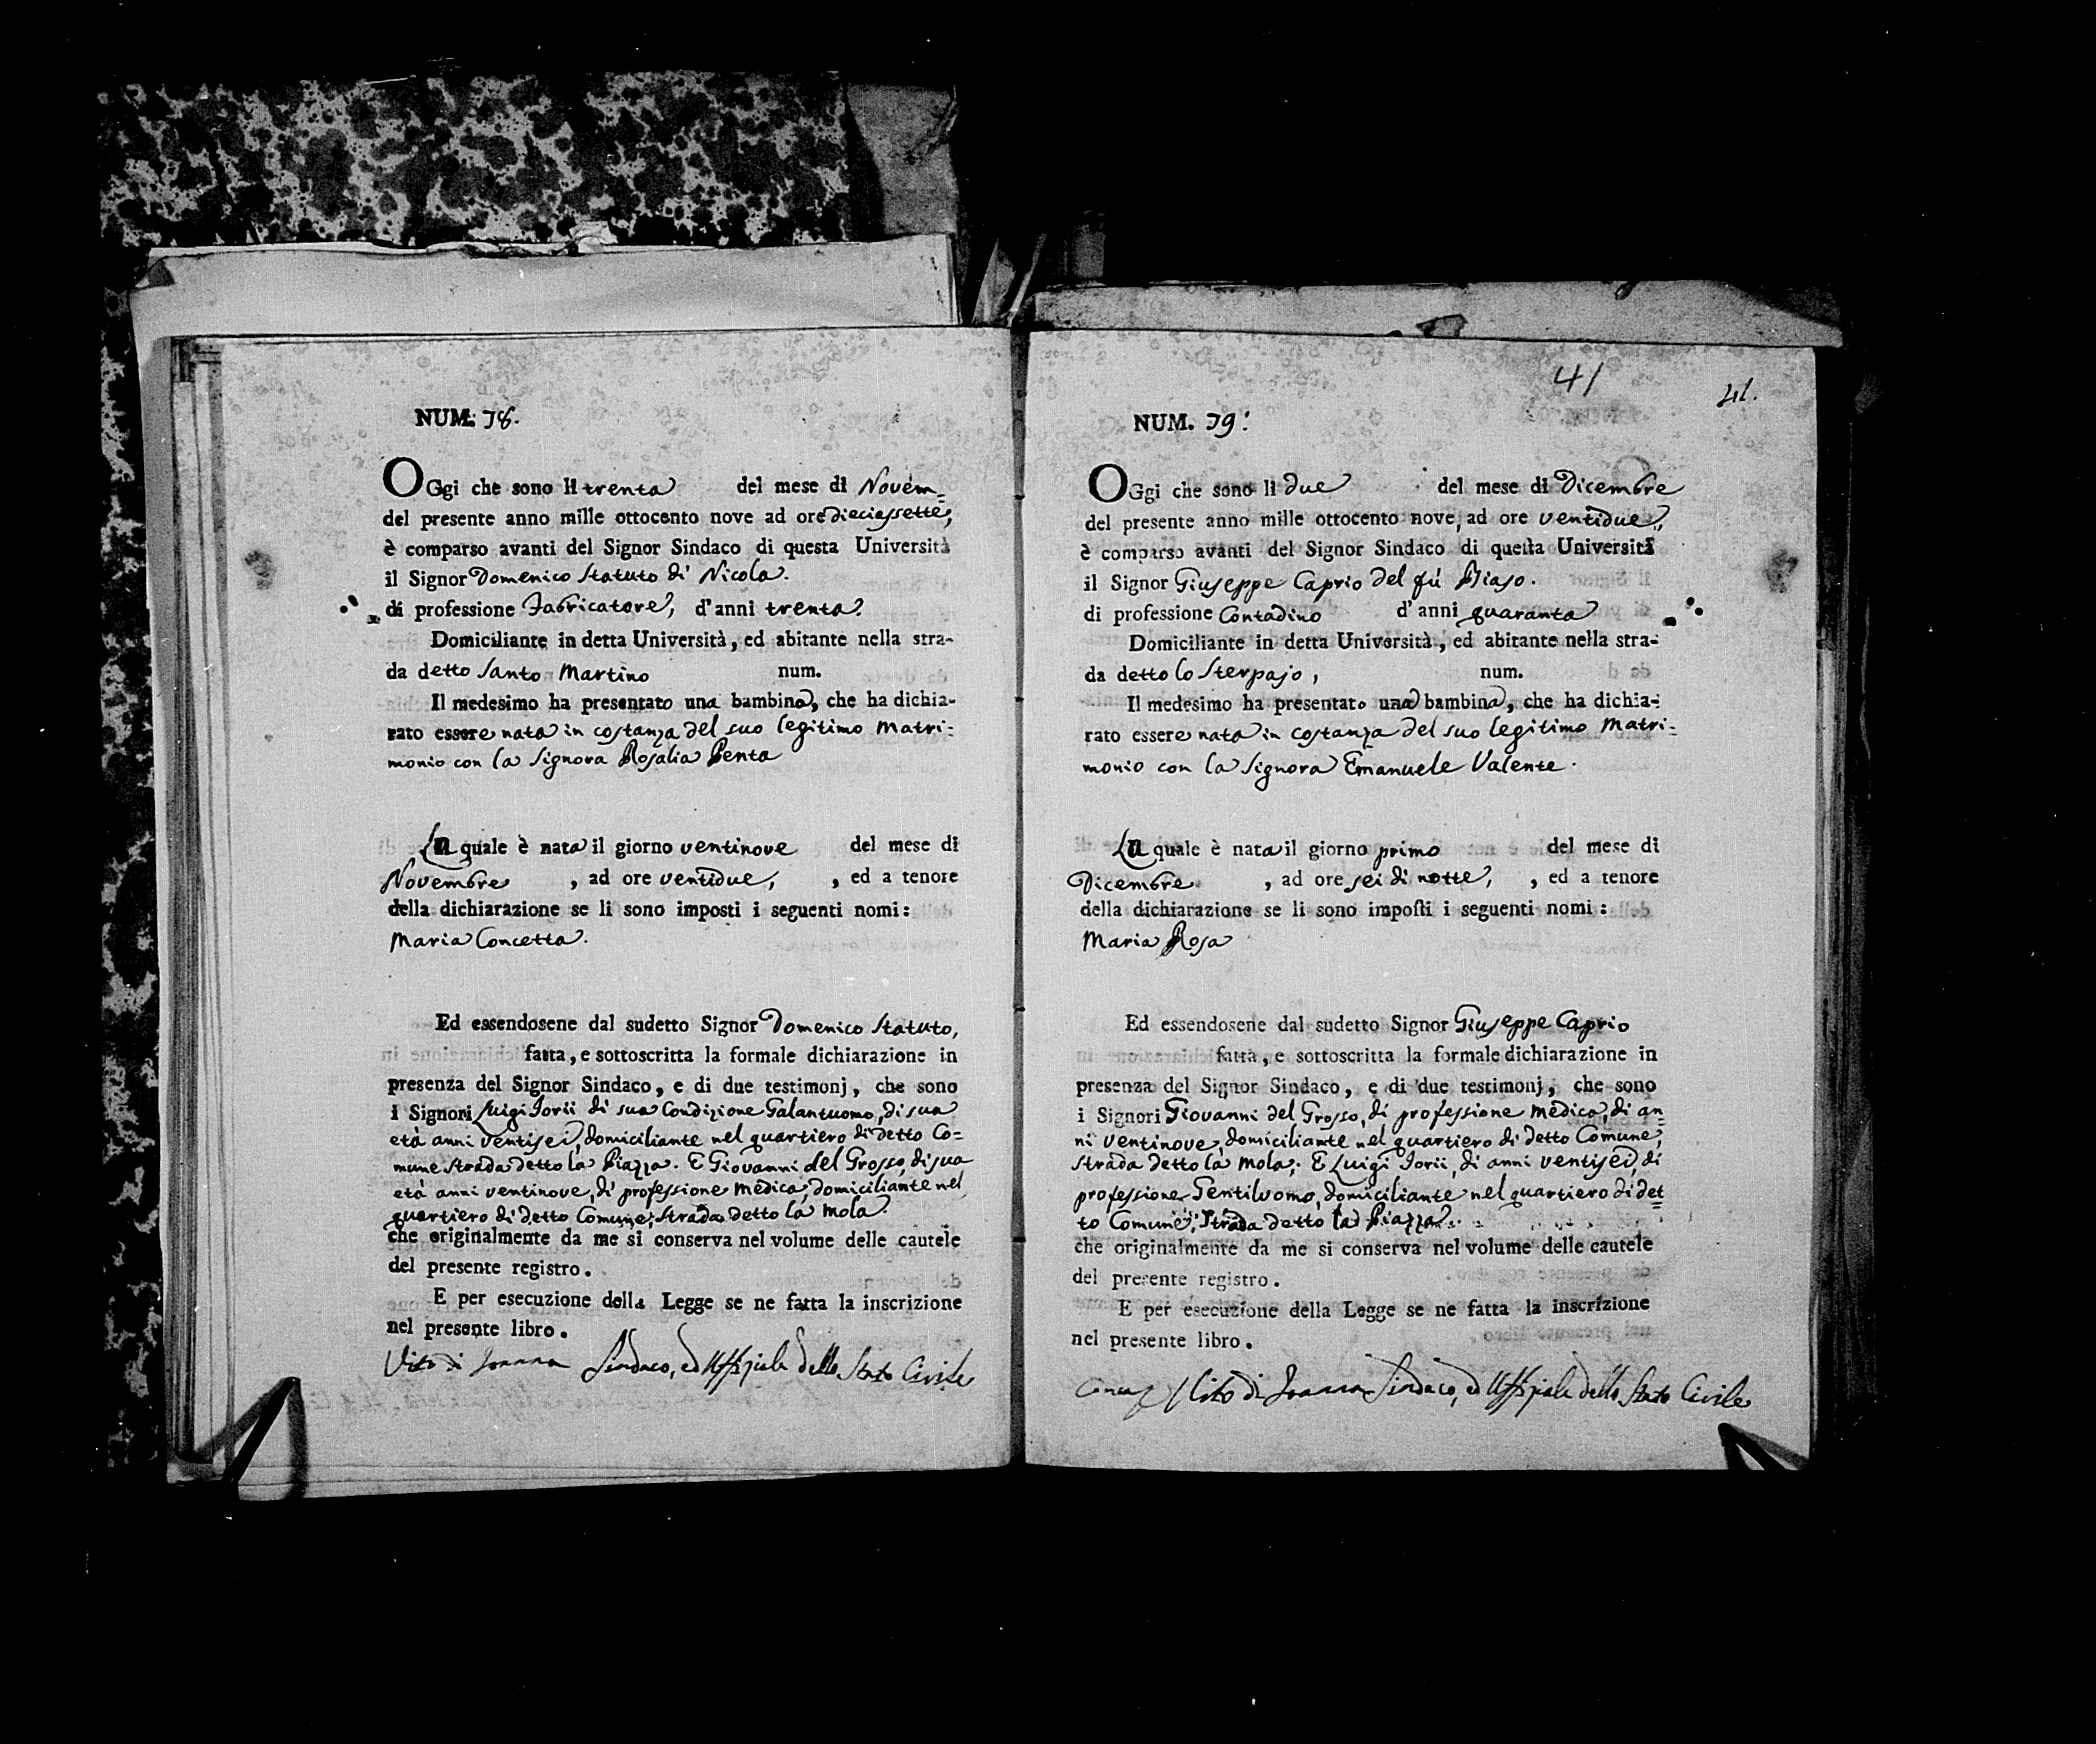 NUM. 78.
OGgi che sono li trenta del mese di Novem=
del presente anno mille ottocento nove ad ore dieciassette,
è comparso avanti del Signor Sindaco di questa Università
il Signor Domenico Statuto di Nicola.
di professione Fabricatore, d'anni trenta.
Domiciliante in detta Università, ed abitante nella stra-
da detto Santo Martino num.
Il medesimo ha presentato una bambina, che ha dichia-
rato essere nata in costanza del suo legitimo Matri=
monio con la Signora Rosalia Penta
La quale è nata il giorno ventinove del mese di
Novembre , ad ore ventidue, , ed a tenore
della dichiarazione se li sono imposti i seguenti nomi:
Maria Concetta.
Ed essendosene dal sudetto Signor Domenico Statuto,
fatta, e sottoscritta la formale dichiarazione in
presenza del Signor Sindaco, e di due testimonj, che sono
i Signori Luigi Iorii di sua Condizione Galantuomo, di sua
età anni ventisei, domiciliante nel quartiero di detto Co=
mune Strada detto la Piazza. E Giovanni del Grosso, di sua
età anni ventinove, di professione Medica, domiciliante nel
quartiero di detto Comune; Strada detto la Mola.
che originalmente da me si conserva nel volume delle cautele
del presente registro.
E per esecuzione della Legge se ne fatta la inscrizione
nel presente libro.
Vito di Joanna Sindaco, ed Uffiziale dello Stato Civile
41
41.
NUM. 79.
OGgi che sono li due del mese di Dicembre
del presente anno mille ottocento nove, ad ore ventidue,
è comparso avanti del Signor Sindaco di questa Università
il Signor Giuseppe Caprio del fù Biaso.
di professione Contadino d'anni quaranta
Domiciliante in detta Università, ed abitante nella stra-
da detto lo Sterpajo, num.
Il medesimo ha presentato una bambina, che ha dichia-
rato essere nata in costanza del suo legitimo Matri=
monio con la Signora Emanuele Valente.
La quale è nata il giorno primo del mese di
Dicembre , ad ore sei di notte, , ed a tenore
della dichiarazione se li sono imposti i seguenti nomi:
Maria Rosa
Ed essendosene dal sudetto Signor Giuseppe Caprio
fatta, e sottoscritta la formale dichiarazione in
presenza del Signor Sindaco, e di due testimonj, che sono
i Signori Giovanni del Grosso, di professione Medica, di an=
ni ventinove, domiciliante nel quartiero di detto Comune,
Strada detto la Mola; E Luigi Iorii, di anni ventisei, di
professione Gentiluomo, domiciliante nel quartiero di det=
to Comune, Strada detto la Piazza.
che originalmente da me si conserva nel volume delle cautele
del presente registro.
E per esecuzione della Legge se ne fatta la inscrizione
nel presente libro.
Vito di Joanna Sindaco, ed Uffiziale dello Stato Civile